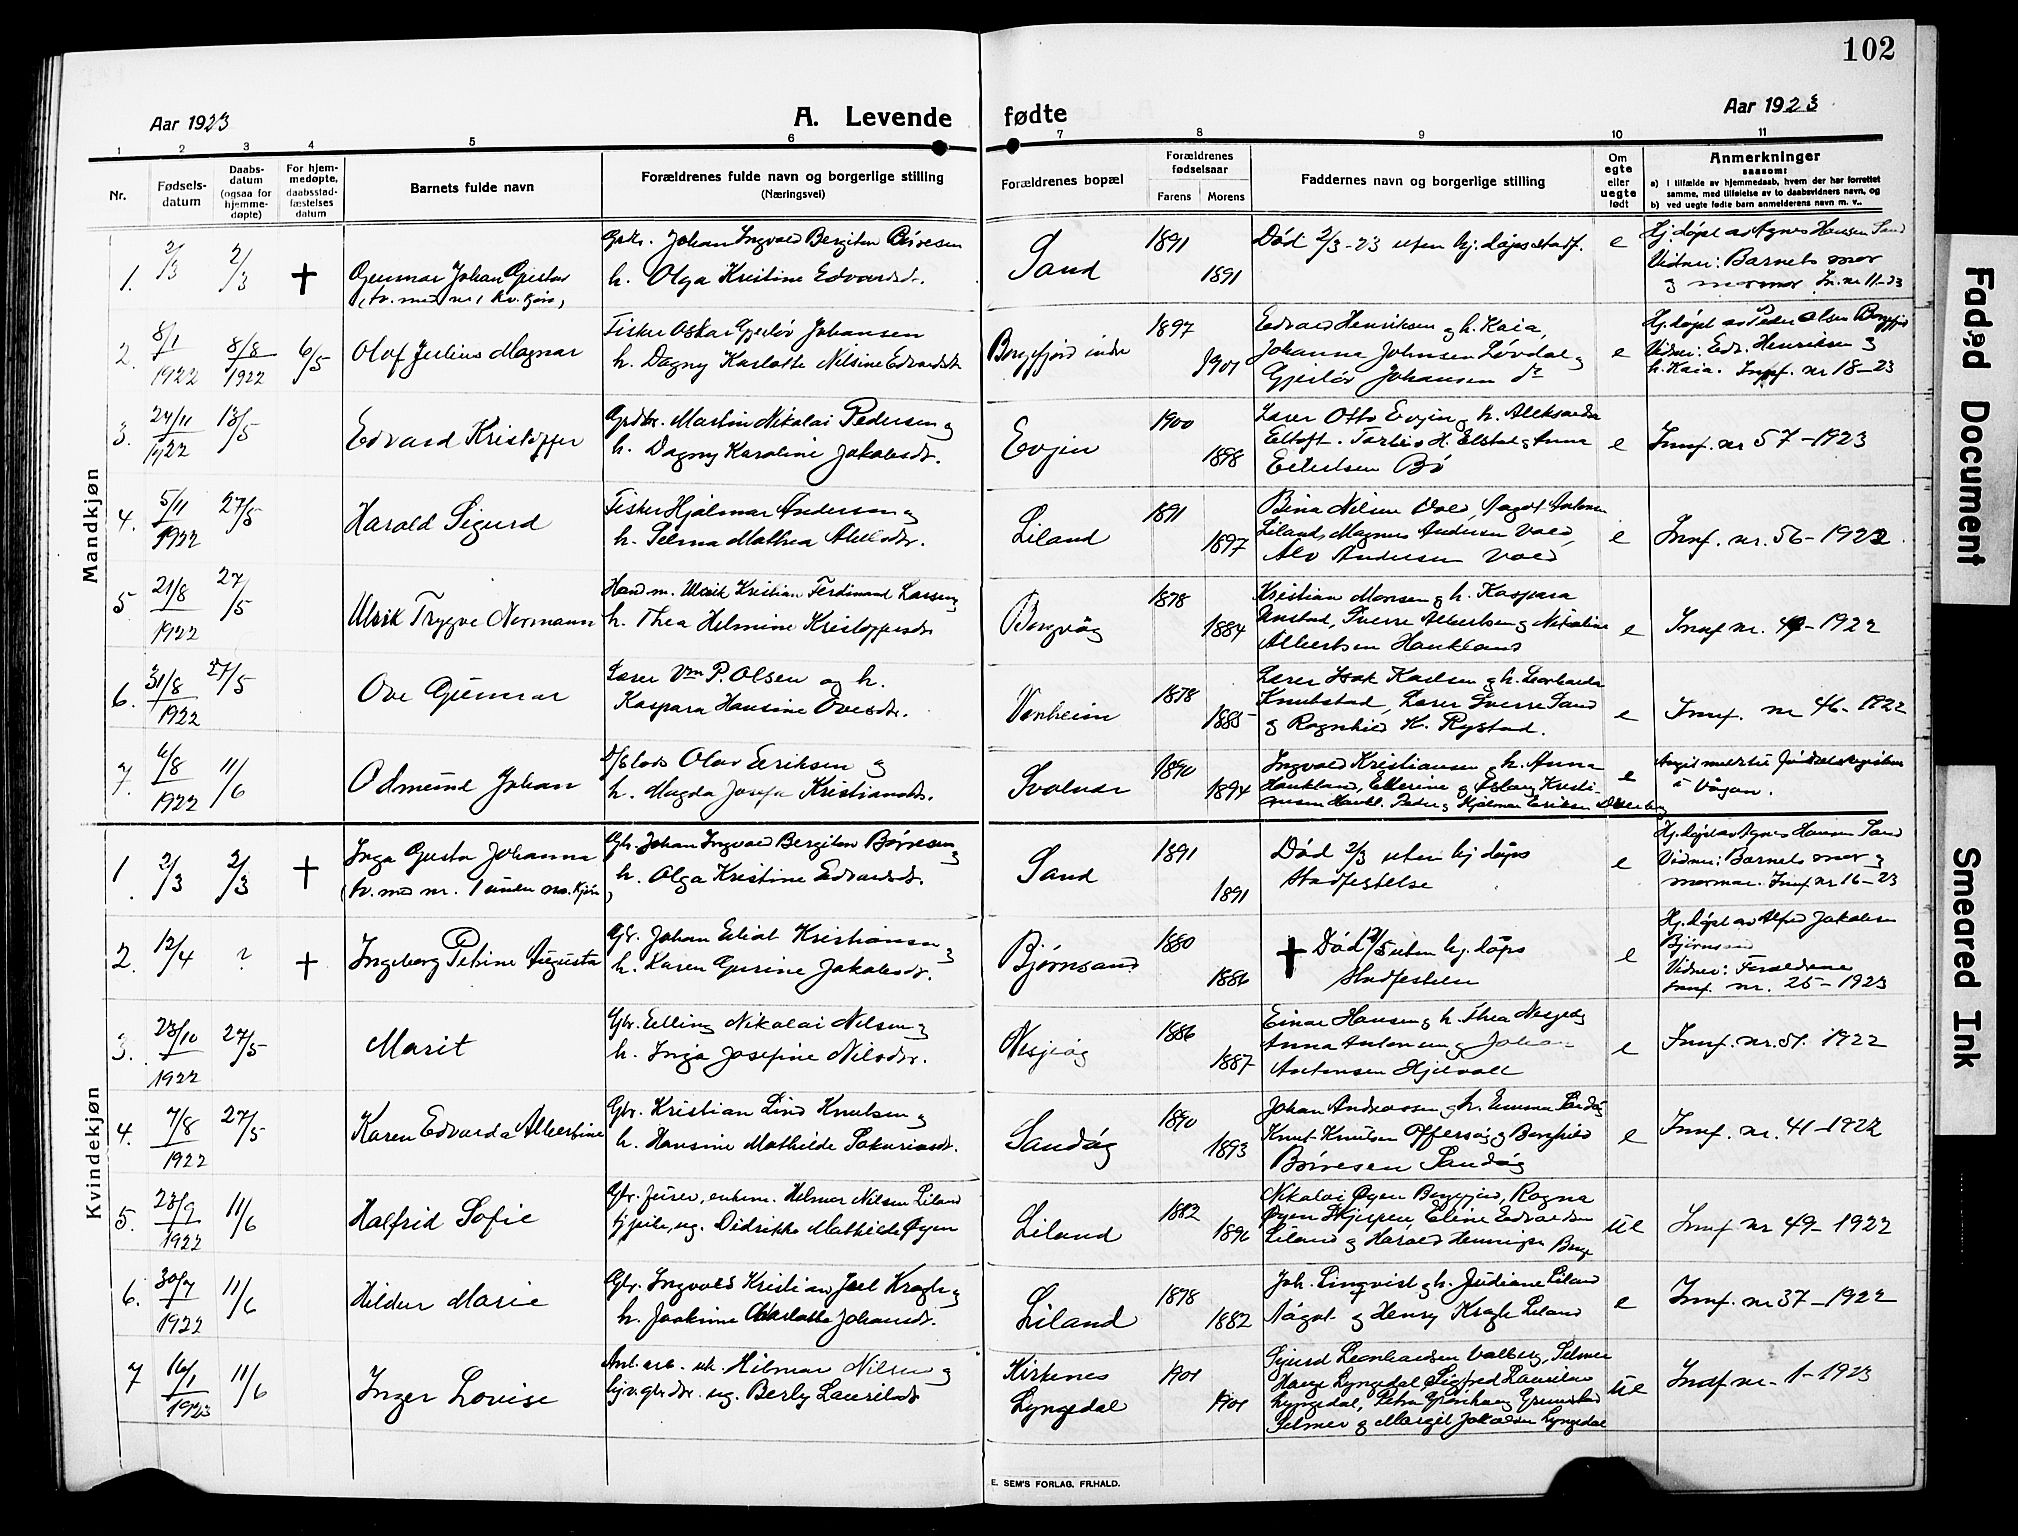 102
Aar 1923
A. Levende fødte
Aar 1923
1 2 3 4 5 6 7 8 9 10 11
Nr.
Fødsels-
datum
Daabs-
datum
(ogsaa for
hjemme-
døpte)
For hjem-
medøpte,
daabsstad-
fæstelses
datum
Barnets fulde navn
Forældrenes fulde navn og borgerlige stilling
(Næringsvei)
Forældrenes bopæl
Forældrenes
fødselsaar
Farens Morens
Faddernes navn og borgerlige stilling
Om
egte
eller
uegte
født
Anmerkninger
saasom:
a) i tilfælde av hjemmedaab, hvem der har forrettet
samme, med tilføielse av to daabsvidners navn, og
b) ved uegte fødte barn anmelderens navn m. v..
Mandkjøn
1. 2/3 2/3 †
Gunnar Johan Gustav
Johan Ingvald Bergiton Børresen
h. Olga Kristine Edvardsdr.
Sand
1891
1891
Død 2/3-23 uten hj. døpsstadf.
e
Hj. døpt av Agnes Hansen Sand
Vidner: Barnets mor
og mormor
2. 8/1 1922 8/8 1922 6/5
Olaf Julius Magnar
Fisker Oskar Gjerløv Johansen
h. Dagny Karlotte Nilsine Edvardsdr.
Borgefjord indre
1897
1901
Edvard Henriksen og h. Kaia,
Johanna Johnsen Løvdal og
Gjerløv Johansen
e
Hj. døpt av Peder Olsen
Vidner: Edv. Henriksen og
h. Kaia. Innf. nr 18-23
3. 24/11 1922 13/5
Edvard Kristoffer
Martin Nikolai Pedersen og
h. Dagny Karoline Jakobsdr.
Evjen
1900
1898
Lærer Otto Evjen og h. Aleksandra
Eltoft. H. Elstad og Anna
Bø
e
Innf. nr 57-1923
4. 5/11 1922 27/5
Harald Sigurd
Fisker Hjalmar Andersen og
h. Selma Mathea
Liland
1891
1897
Bina Nilsen Vold,
Liland, Magnus Andersen Vold,
Alv Andersen Vold
e
Innf. nr. 56-1922
5. 21/8 1922 27/5
Ulrik Trygve Normann
Ulrik Kristian Ferdinand Larsen og
h. Thea Helmine Kristoffersdr.
Borgvåg
1878
1884
Kristian Monsen og h. Kaspara
Unstad, Sverre Albertsen og Nikoline
Albertsen Haukland
e
Innf. nr. -1922
6. 31/8 1922 27/5
Ove Gunnar
Lærer Vm P. Olsen og h.
Kaspara Hansine Ovesdr.
Vonheim
1878
1885
Lærer Isak Karlsen og h. Leonharda
Knutstad, Lærer Sverre Sand
og Ragnhild K. Rystad.
e
Innf. nr 46-1922
7. 6/8 1922 11/6
Odmund Johan
Olav Eriksen og
h. Magda Josefa Kristiansdr.
Svolvær
1890
1894
Ingvald Kristiansen og h. Anna
Haukland, Ellerine og Kristi-
ansen Haukl. Peder og Hjalmar Eriksen
e
i Vågan.
Kvindekjøn
1. 2/3 2/3 †
Inga Gusta Johanna
(tv. med nr. 1 under m. kjøn)
Gbr. Johan Ingvald Bergiton Børresen og
h. Olga Kristine Edvardsdr.
Sand
1891
1891
Død 2/3 uten hj. døps
stadfestelse
e
Hj. døpt av Agnes Hansen Sand
Vidner: Barnets mor og
mormor. Innf. nr 16-23
2. 12/4 ? †
Ingeborg Petrine Augusta
Gbr. Johan Eliat Kristiansen og
h. Karen Gurine Jakobsdr.
Bjørnsand
1880
1886
† Død uten hj. døps
stadfestelse
e
Hj. døpt av Alfred Jakobsen
Bjørnsand
Vidner: Forældrene
Innf. nr. 25-1923
3. 23/10 1922 27/5
Marit
Gbr. Elling Nikolai Nilsen og
h. Inga Josefine Nilsdr.
1886
1887
Einar Hansen og h. Thea
Anna Antonsen og Johan
Antonsen Hjelvoll
e
Innf. nr. 51. 1922
4. 7/8 1922 27/5
Karen Edvarda Albertine
Gbr. Kristian Lind Knutsen og
h. Hansine Mathilde Sakariasdr.
Sandåg
1890
1893
Johan Andreassen og h. Emma Sandåg
Knut Knutsen Offersøy og Borghild
Børresen Sandåg
e
Innf. nr. 41-1922
5. 23/9 1922 11/6
Halfrid Sofie
Helmer Nilsen Liland
ug. Didrikke Mathilde Øyen
Liland
1882
1896
Nikolai Øyen Borgfjord, Ragna
Øyen Skjerpen, Eline Edvardsen
Liland og Harald Henningsen Borge
ue
Innf. nr 49-1922
6. 30/7 1922 11/6
Hildur Marie
Gbr. Ingvald Kristian Joel Kragh og
h. Joakime Charlotte Johansdr.
Liland
1878
1882
Joh. Lingvist og h. Judiane Liland
Aagot og Henry Kragh Liland
e
Innf. nr 37-1922
7 16/1 1923 11/6
Inger Lovise
Anl. arb. uk. Hilmar Nilsen og
ug. Berly Lauritsdr.
Kirkenes
Lyngedal
1901
1901
Sigurd Leonhardsen Valberg, Selmer
Hauge Lyngedal, Sigfred Lauritsen
Lyngedal, Petra
Selmer og Margit Jakobsen Lyngedal
ue
Indf. nr. 1-1923
E. SEM'S FORLAG, FR.HALD.
Faded Document
Smeared Ink